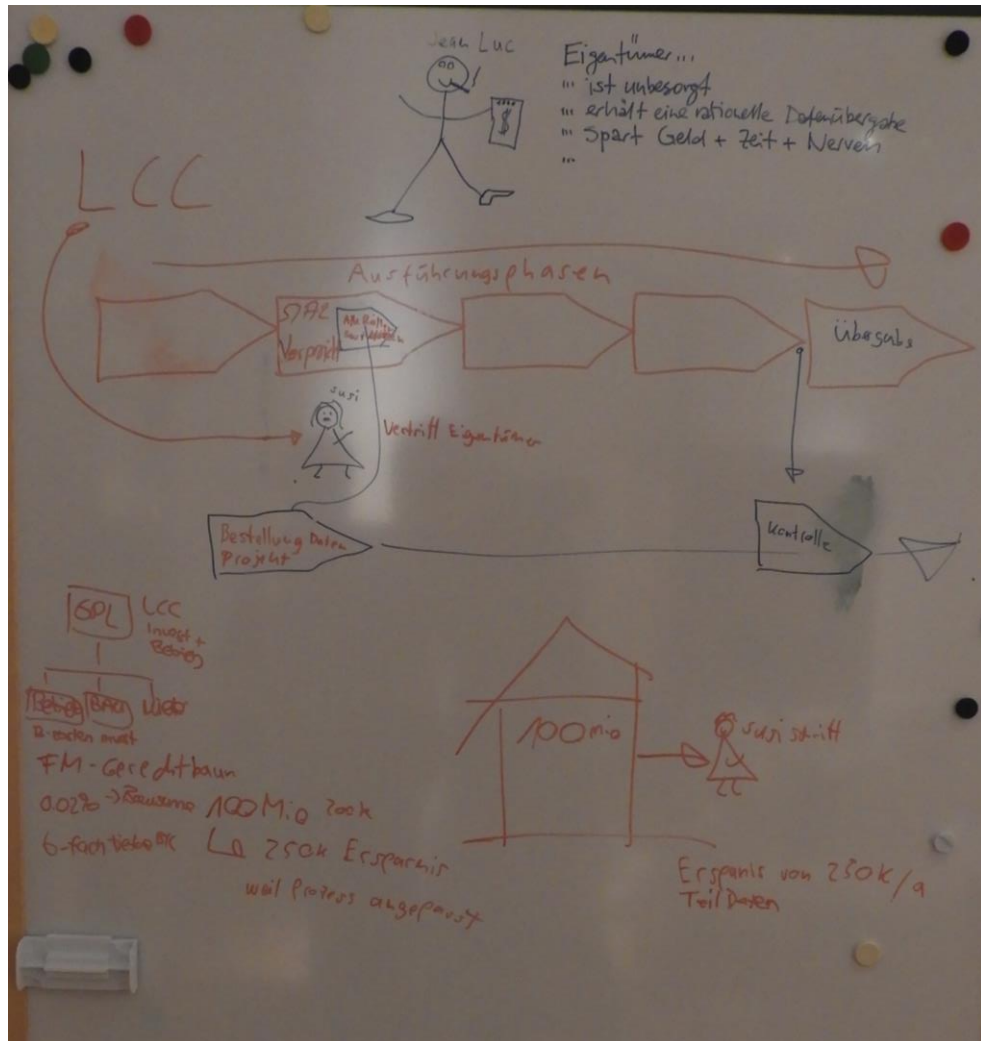 Jean Luc
Eigentümer...
... ist unbesorgt
... erhält eine rationelle Datenübergabe
... Spart Geld + Zeit + Nerven
...
$
LCC
Ausführungsphasen
Übergabe
susi
Vertritt Eigentümer
Bestellung Daten
Projekt
Kontrolle
GPL
LCC
Invest +
Betrieb
Betrieb
100 Mio
susi
FM-Gerecht
0.02% → Bausumme 100 Mio 200k
6-fach
250k Ersparnis
weil Prozess angepasst
Erspanis von 250k/a
Teil Daten